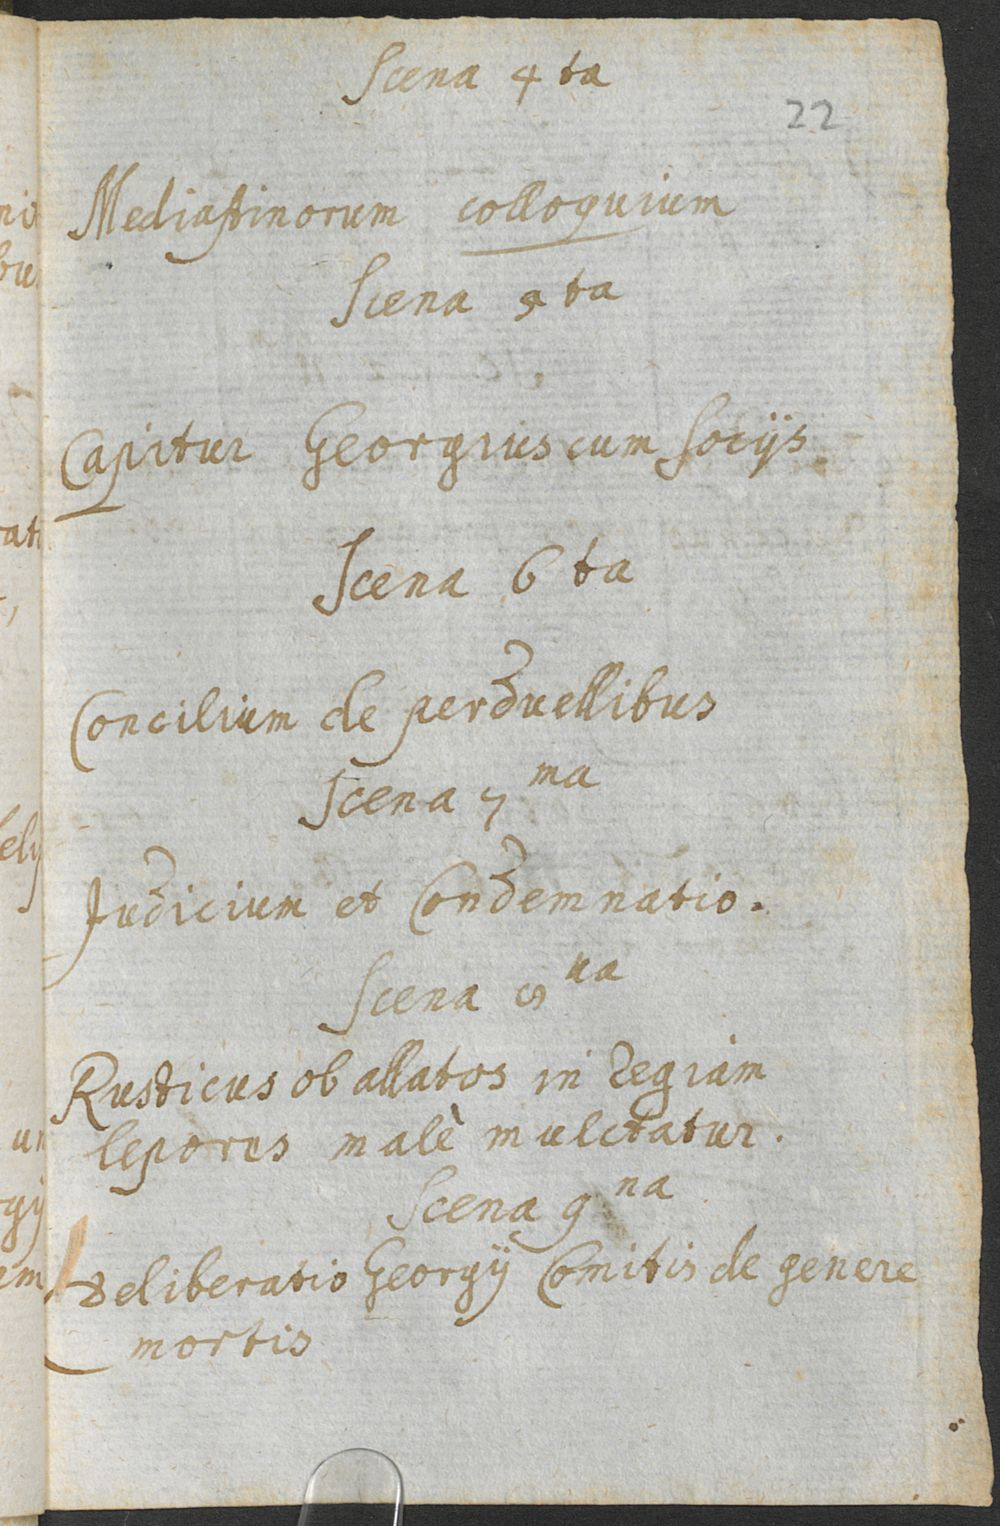 Scena 4 ta
22
Mediastinorum colloquium
Scena 5 ta
Capitur Georgius cum socijs
Scena 6 ta
Concilium de perduellibus
Scena 7 ma
Judicium et Condemnatio.
Scena 8 va
Rusticus ob allatos in regiam
lepores malè mulctatur.
Scena 9 na
Deliberatio Georgij Comitis de genere
mortis